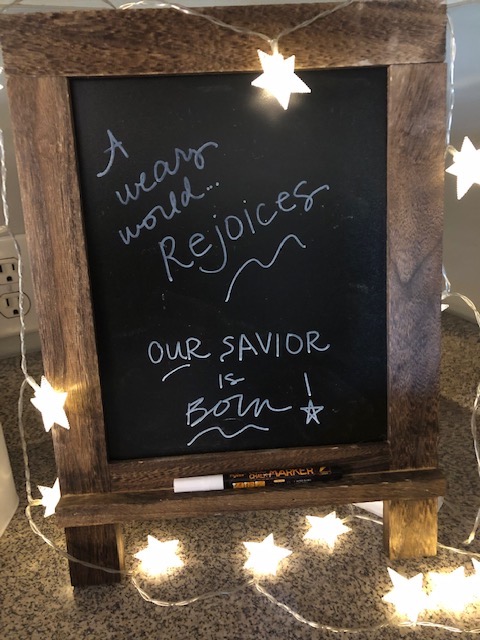 A
weary
world...
Rejoices
OUR SAVIOR
is
Born!
MARKER